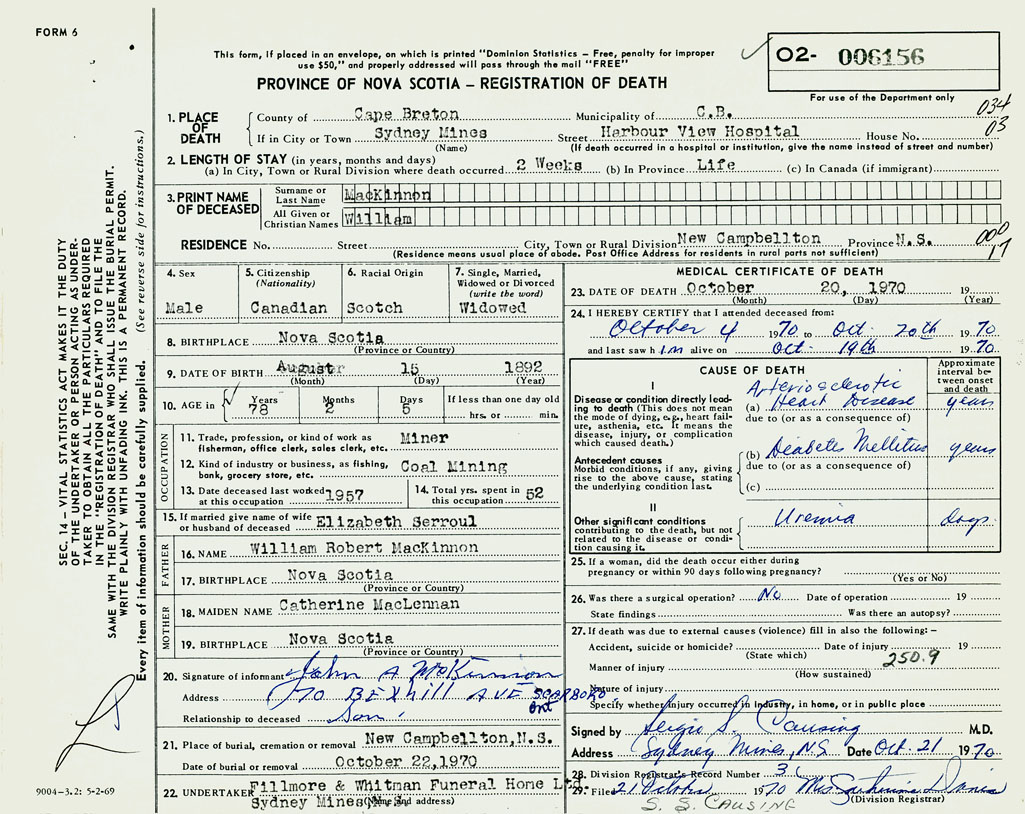 FORM 6
This form, if placed in an envelope, on which is printed "Dominion Statistics – Free, penalty for improper
use $50," and properly addressed will pass through the mail "FREE"
PROVINCE OF NOVA SCOTIA – REGISTRATION OF DEATH
O2- 006156
For use of the Department only
034
03
1. PLACE OF DEATH
County of Cape Breton Municipality of C.B.
If in City or Town Sydney Mines Street Harbour View Hospital House No.
(Name) (If death occurred in a hospital or institution, give the name instead of street and number)
2. LENGTH OF STAY (in years, months and days)
(a) In City, Town or Rural Division where death occurred 2 Weeks (b) In Province Life (c) In Canada (if immigrant)
3. PRINT NAME OF DECEASED
Surname or Last Name MacKinnon
All Given or Christian Names William
RESIDENCE No. Street City, Town or Rural Division New Campbellton Province N.S.
(Residence means usual place of abode. Post Office Address for residents in rural parts not sufficient)
000
17
4. Sex
Male
5. Citizenship
(Nationality)
Canadian
6. Racial Origin
Scotch
7. Single, Married,
Widowed or Divorced
(write the word)
Widowed
8. BIRTHPLACE Nova Scotia
(Province or Country)
9. DATE OF BIRTH August 15 1892
(Month) (Day) (Year)
10. AGE in Years Months Days If less than one day old
78 2 5 hrs. or min.
OCCUPATION
11. Trade, profession, or kind of work as Miner
fisherman, office clerk, sales clerk, etc.
12. Kind of industry or business, as fishing, Coal Mining
bank, grocery store, etc.
13. Date deceased last worked at this occupation 1957
14. Total yrs. spent in this occupation 52
15. If married give name of wife or husband of deceased Elizabeth Serroul
FATHER
16. NAME William Robert MacKinnon
17. BIRTHPLACE Nova Scotia
(Province or Country)
MOTHER
18. MAIDEN NAME Catherine MacLennan
19. BIRTHPLACE Nova Scotia
(Province or Country)
20. Signature of informant John A McKinnon
Address 70 BEXhill AVE SCARBORO
Ont
Relationship to deceased Son
21. Place of burial, cremation or removal New Campbellton, N.S.
Date of burial or removal October 22, 1970
22. UNDERTAKER Fillmore & Whitman Funeral Home Ltd.
Sydney Mines
(Name and address)
MEDICAL CERTIFICATE OF DEATH
23. DATE OF DEATH October 20, 1970 19
(Month) (Day) (Year)
24. I HEREBY CERTIFY that I attended deceased from:
October 4 1970 to Oct. 20th 1970
and last saw h im alive on Oct. 19th 1970
CAUSE OF DEATH
Approximate interval between onset and death
I
Disease or condition directly leading to death (This does not mean the mode of dying, e.g., heart failure, asthenia, etc. It means the disease, injury, or complication which caused death.)
(a) Arteriosclerotic Heart Disease years
due to (or as a consequence of)
Antecedent causes
Morbid conditions, if any, giving rise to the above cause, stating the underlying condition last.
(b) Diabetes Mellitus years
due to (or as a consequence of)
(c)
II
Other significant conditions
contributing to the death, but not related to the disease or condition causing it.
Uremia days
25. If a woman, did the death occur either during
pregnancy or within 90 days following pregnancy?
(Yes or No)
26. Was there a surgical operation? No Date of operation 19
State findings Was there an autopsy?
27. If death was due to external causes (violence) fill in also the following: –
Accident, suicide or homicide? Date of injury 19
(State which) 250.9
Manner of injury
(How sustained)
Nature of injury
Specify whether injury occurred in industry, in home, or in public place
Signed by Sergio S. Causing M.D.
Address Sydney Mines, NS Date Oct. 21 1970
28. Division Registrar's Record Number 3
29. Filed 21 October 1970 Mrs
(Division Registrar)
S. S. CAUSING
SEC. 14 – VITAL STATISTICS ACT MAKES IT THE DUTY
OF THE UNDERTAKER OR PERSON ACTING AS UNDER-
TAKER TO OBTAIN ALL THE PARTICULARS REQUIRED
IN THE "REGISTRATION OF DEATH" AND TO FILE THE
SAME WITH THE DIVISION REGISTRAR WHO SHALL ISSUE THE BURIAL PERMIT.
WRITE PLAINLY WITH UNFADING INK. THIS IS A PERMANENT RECORD.
Every item of information should be carefully supplied. (See reverse side for instructions.)
9004-3.2: 5-2-69